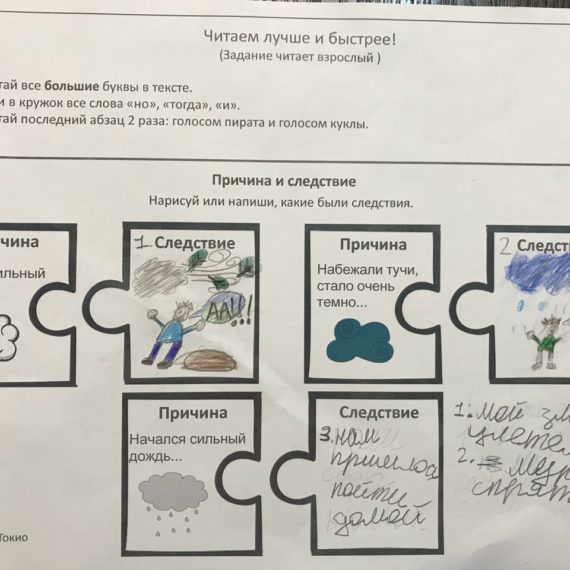 Читаем лучше и быстрее!
(Задание читает взрослый )
тай все большие буквы в тексте.
и в кружок все слова «но», «тогда», «и».
тай последний абзац 2 раза: голосом пирата и голосом куклы.
Причина и следствие
Нарисуй или напиши, какие были следствия.
чина
ильный
1. Следствие
Причина
Набежали тучи,
стало очень
темно...
2 Следст
Причина
Начался сильный
дождь...
Следствие
3. нам
пришлось
пойти
домой
1. мой зм
улете
2. мур
спрят
Токио